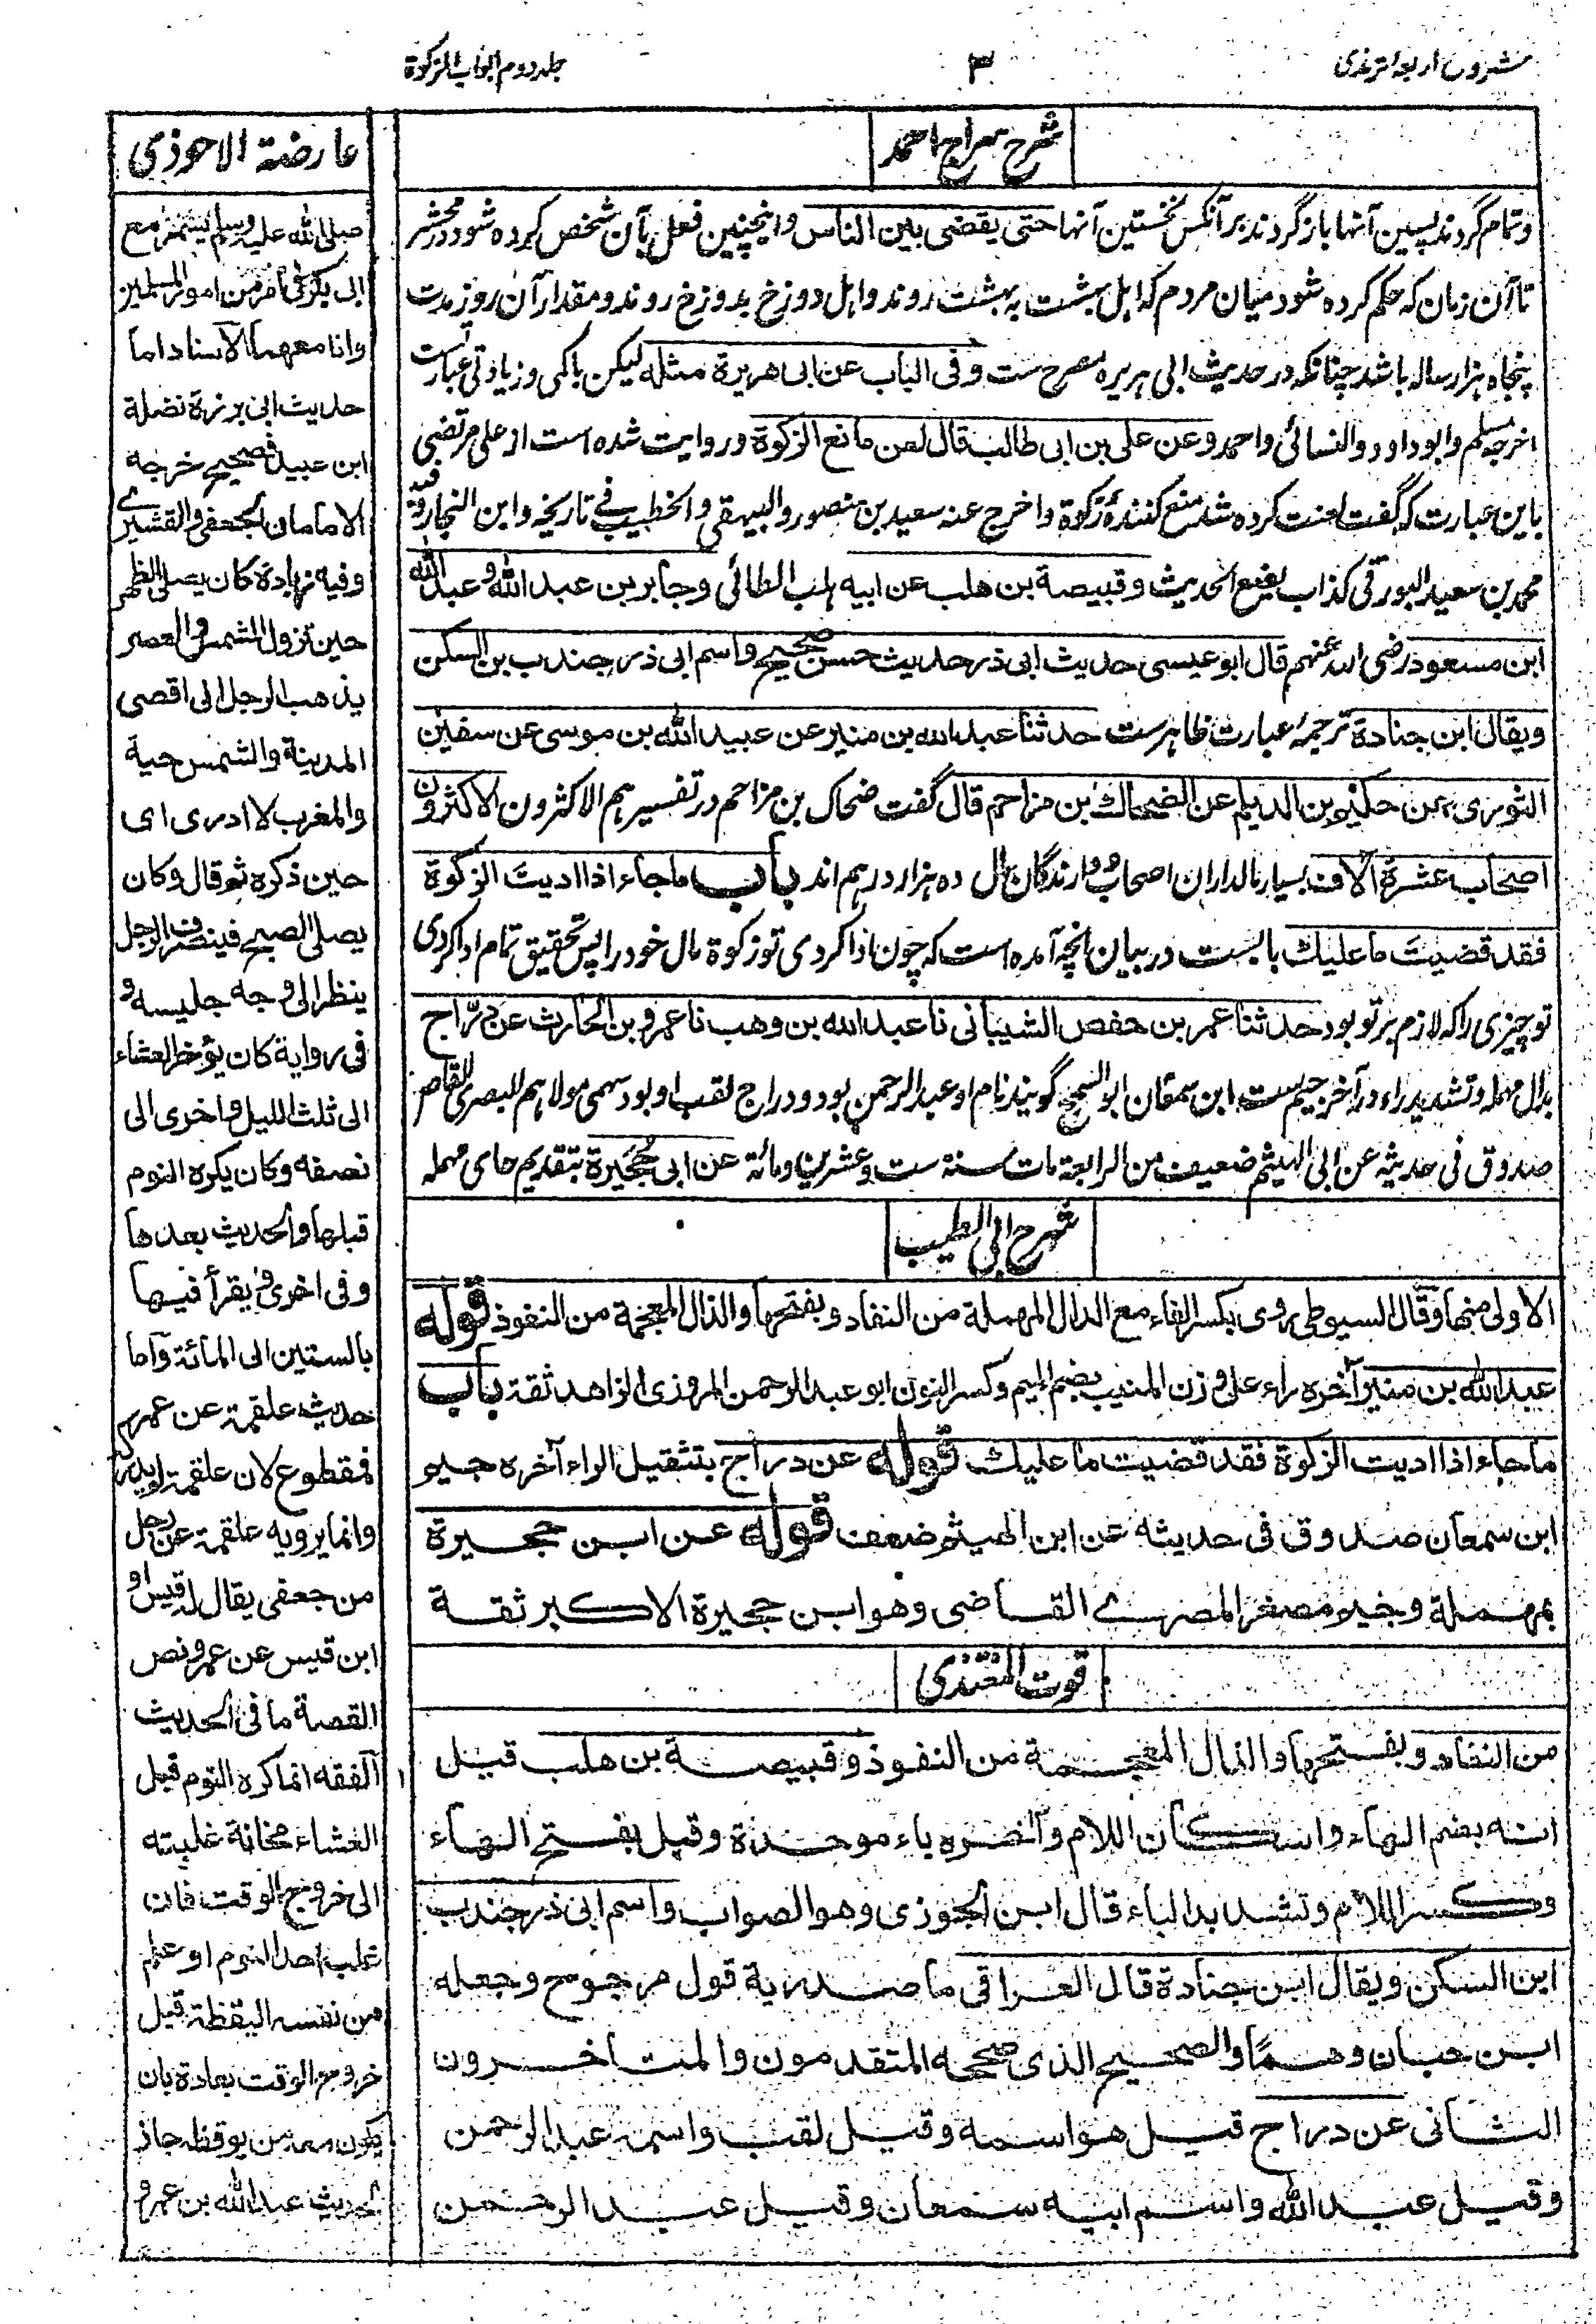 شروح اربعه ترمذی
۳
جلد دوم ابواب الزکوة
شرح سراج احمد
وتمام گردند پسین آنها باز گردند بر آنکس نخستین آنها حتی یقضی بین الناس واینچنین فعل بآن شخص کرده شود در محشر
تا آن زمان که حکم کرده شود میان مردم که اهل بهشت به بهشت روند و اهل دوزخ بدوزخ روند و مقدار آن روز مدت
پنجاه هزار ساله باشد چنانکه در حدیث ابی هریره مصرح ست وفی الباب عن ابی هریرة مثله لیکن باکمی و زیادتی عبارت
اخرجه مسلم وابوداود والنسائی واحمد وعن علی بن ابی طالب قال لعن مانع الزکوة و روایت شده است از علی مرتضی
باین عبارت که گفت لعنت کرده شد منع کنندهٔ زکوة واخرج عنه سعید بن منصور والبیهقی والخطیب فی تاریخه وابن النجار وفیه
محمد بن سعید البورقی کذاب یضع الحدیث وقبیصة بن هلب عن ابیه هلب الطائی وجابر بن عبد الله وعبد الله
ابن مسعود رضی الله عنهم قال ابو عیسی حدیث ابی ذر حدیث حسن صحیح واسم ابی ذر جندب بن السکن
ویقال ابن جنادة ترجمهٔ عبارت ظاهرست حدثنا عبد الله بن منیر عن عبید الله بن موسی عن سفین
الثوری عن حکیم بن الدیلم عن الضحاک بن مزاحم قال گفت ضحاک بن مزاحم در تفسیر هم الاکثرون الاکثرون
اصحاب عشرة الاف بسیار مالداران اصحاب و دارندگان مال ده هزار درهم اند باب ماجاء اذا ادیت الزکوة
فقد قضیت ما علیک بابست در بیان آنچه آمده است که چون ادا کردی تو زکوة مال خود را پس تحقیق تمام ادا کردی
تو چیزی را که لازم بر تو بود حدثنا عمر بن حفص الشیبانی نا عبد الله بن وهب نا عمرو بن الحارث عن درّاج
بدال مهمله وتشدید راء و در آخر جیم ست ابن سمعان ابو السمح گویند نام او عبد الرحمن بود و دراج لقب او بود سهمی مولاهم المصری القاص
صدوق فی حدیثه عن ابی الهیثم ضعیف من الرابعة مات سنة ست وعشرین ومائة عن ابی حُجَیرة بتقدیم حای مهمله
شرح ابی الطیب
الاولی منها وقال السیوطی یروی بکسر الفاء مع الدال المهملة من النفاد وبفتحها والذال المعجمة من النفوذ قوله
عبد الله بن منیر آخره راء علی وزن المنیب بضم المیم وکسر النون ابو عبد الرحمن المروزی الزاهد ثقة باب
ماجاء اذا ادیت الزکوة فقد قضیت ما علیک قوله عن دراج بتثقیل الراء آخره جیم
ابن سمعان صدوق فی حدیثه عن ابن الهیثم ضعف قوله عن ابن حجیرة
بمهملة وجیم مصغر المصری القاضی وهو ابن حجیرة الاکبر ثقة
قوت المغتذی
من النفاد وبفتحها والذال المعجمة من النفوذ وقبیصة بن هلب قیل
انه بضم الهاء واسکان اللام وآخره باء موحدة وقیل بفتح الهاء
وکسر اللام وتشدید الباء قال ابن الجوزی وهو الصواب واسم ابی ذر جندب
ابن السکن ویقال ابن جنادة قال العراقی ما صدر به قول مرجوح وجعله
ابن حبان وهمًا والصحیح الذی صححه المتقدمون والمتاخرون
الثانی عن دراج قیل هو اسمه وقیل لقب واسمه عبد الرحمن
وقیل عبد الله واسم ابیه سمعان وقیل عبد الرحمن
عارضة الاحوذی
صلی الله علیه وسلم یسمر مع
ابی بکر فی امر من امور المسلمین
وانا معهما الاسناد اما
حدیث ابی برزة نضلة
ابن عبید فصحیح خرجه
الامامان الجعفی والقشیری
وفیه زیادة کان یصلی الظهر
حین تزول الشمس والعصر
یذهب الرجل الی اقصی
المدینة والشمس حیة
والمغرب لا ادری ای
حین ذکره ثم قال وکان
یصلی الصبح فینصرف الرجل
ینظر الی وجه جلیسه و
فی روایة کان یؤخر العشاء
الی ثلث اللیل واخری الی
نصفه وکان یکره النوم
قبلها والحدیث بعدها
وفی اخری ویقرأ فیها
بالستین الی المائة واما
حدیث علقمة عن عمر
فمقطوع لان علقمة لم یدرک
وانما یرویه علقمة عن رجل
من جعفی یقال له قیس او
ابن قیس عن عمر ونص
القصة ما فی الحدیث
الفقه انما کره النوم قبل
العشاء مخافة غلبته
الی خروج الوقت فان
غلب احدا النوم او علم
من نفسه الیقظة قبل
خروج الوقت بعادة بان
یکون معه من یوقظه جاز
لحدیث عبد الله بن عمر و